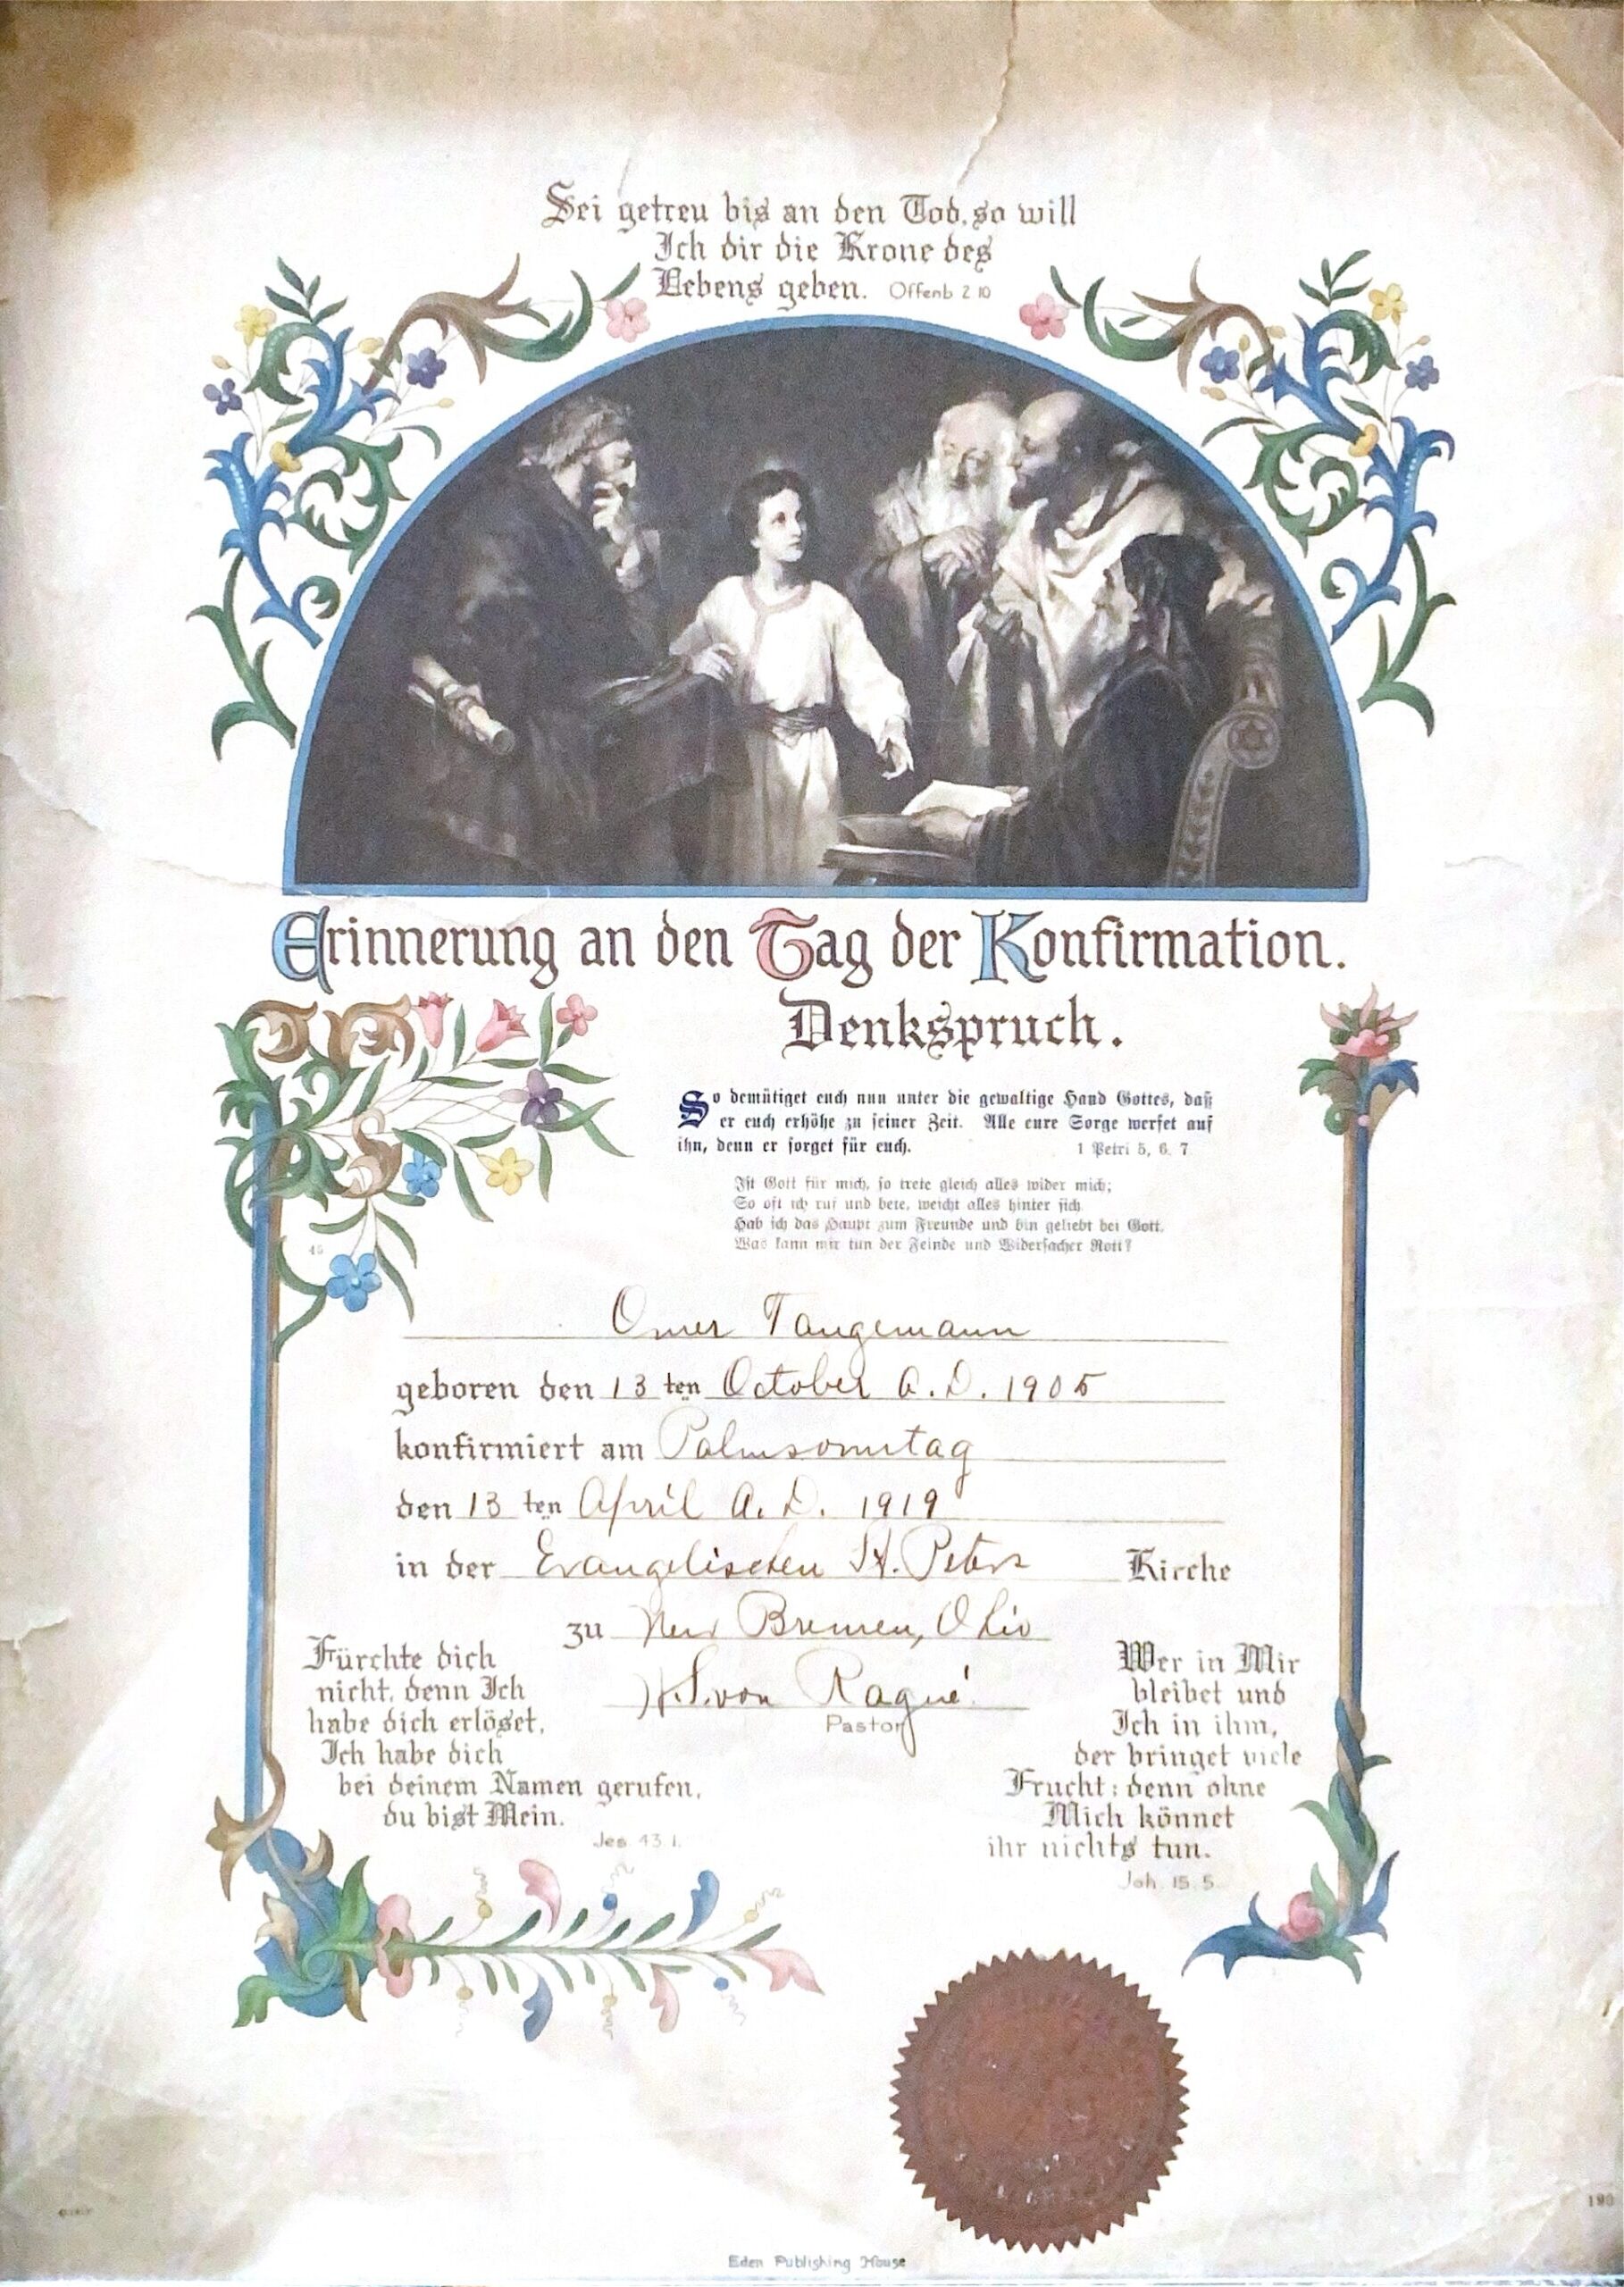 Sei getreu bis an den Tod, so will
Ich dir die Krone des
Lebens geben. Offenb 2 10
Erinnerung an den Tag der Konfirmation.
Denkspruch.
So demütiget euch nun unter die gewaltige Hand Gottes, daß
er euch erhöhe zu seiner Zeit. Alle eure Sorge werfet auf
ihn, denn er sorget für euch. 1 Petri 5, 6. 7
Ist Gott für mich, so trete gleich alles wider mich;
So oft ich ruf und bete, weicht alles hinter sich.
Hab ich das Haupt zum Freunde und bin geliebt bei Gott.
Was kann mir tun der Feinde und Widersacher Rott?
45
Omer Tangemann
geboren den 13 ten October A.D. 1905
konfirmiert am Palmsonntag
den 13 ten April A.D. 1919
in der Evangelischen St. Peters Kirche
zu New Bremen, Ohio
H.S. von Ragué.
Pastor
Fürchte dich
nicht, denn Ich
habe dich erlöset,
Ich habe dich
bei deinem Namen gerufen,
du bist Mein.
Jes. 43 1.
Wer in Mir
bleibet und
Ich in ihm,
der bringet viele
Frucht: denn ohne
Mich könnet
ihr nichts tun.
Joh. 15. 5.
190
Eden Publishing House